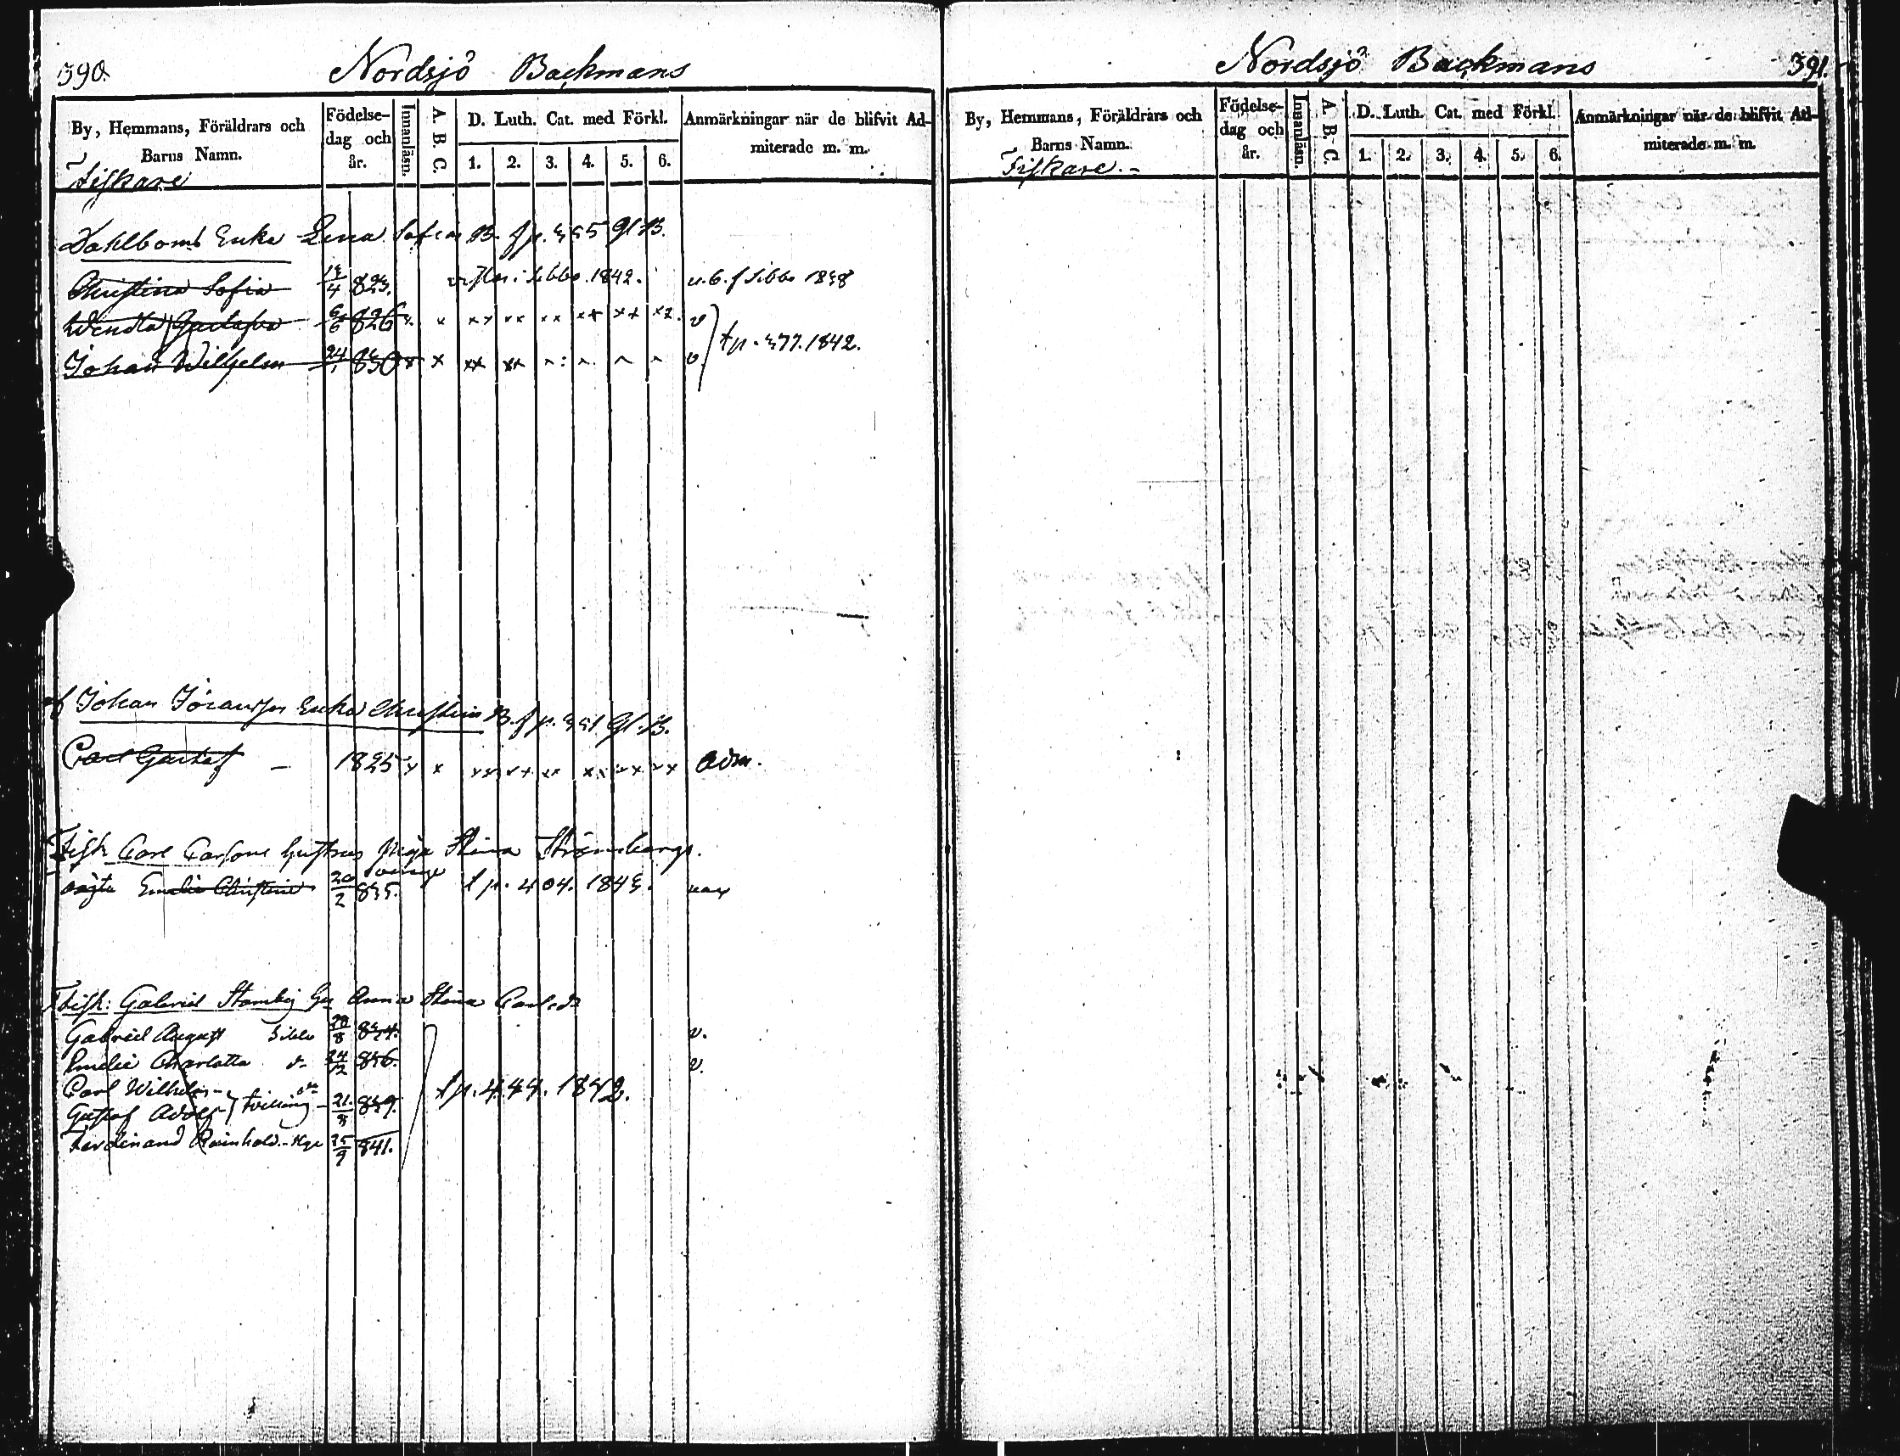 390.
Nordsjö Backmans
By, Hemmans, Föräldrars och Barns Namn.
Födelse-dag och år.
Innanläsn.
A. B. C.
D. Luth. Cat. med Förkl.
1. 2. 3. 4. 5. 6.
Anmärkningar när de blifvit Admiterade m. m.
Fiskare
Dahlboms Enka Lena Sofia B. f p. 335 Gl. B.
Christina Sofia 4 823. Sibbo 1842. Sibbo 1838
Wendla Gustafva 6/6 826 x x xx xx xx xx xx v
t p. 377. 1842.
Johan Wilhelm 24/1 830 x x xx xx v
Johan Enka Christina B. f p. 331 Gl. B.
Carl Gustaf – 1825 x x xx xx xx xx xx xx adm.
Fisk Carl Carlsons hustrus Stina Strömbergs.
oägta Emelie Christine 20/2 835. t p. 404. 1843.
Fisk: Gabriel Anna Stina Carlsdr
Gabriel August Sibbo 20/8 834. v.
Emelie Charlotta d– 24/2 836. v.
Carl Wilhelm
Gustaf Adolf } tvilling 21. 839.
t p. 444. 1842.
Ferdinand Reinhold 25/9 841.
Nordsjö Backmans
391.
By, Hemmans, Föräldrars och Barns Namn.
Födelse-dag och år.
Innanläsn.
A. B. C.
D. Luth. Cat. med Förkl.
1. 2. 3. 4. 5. 6.
Anmärkningar när de blifvit Admiterade m. m.
Fiskare. –